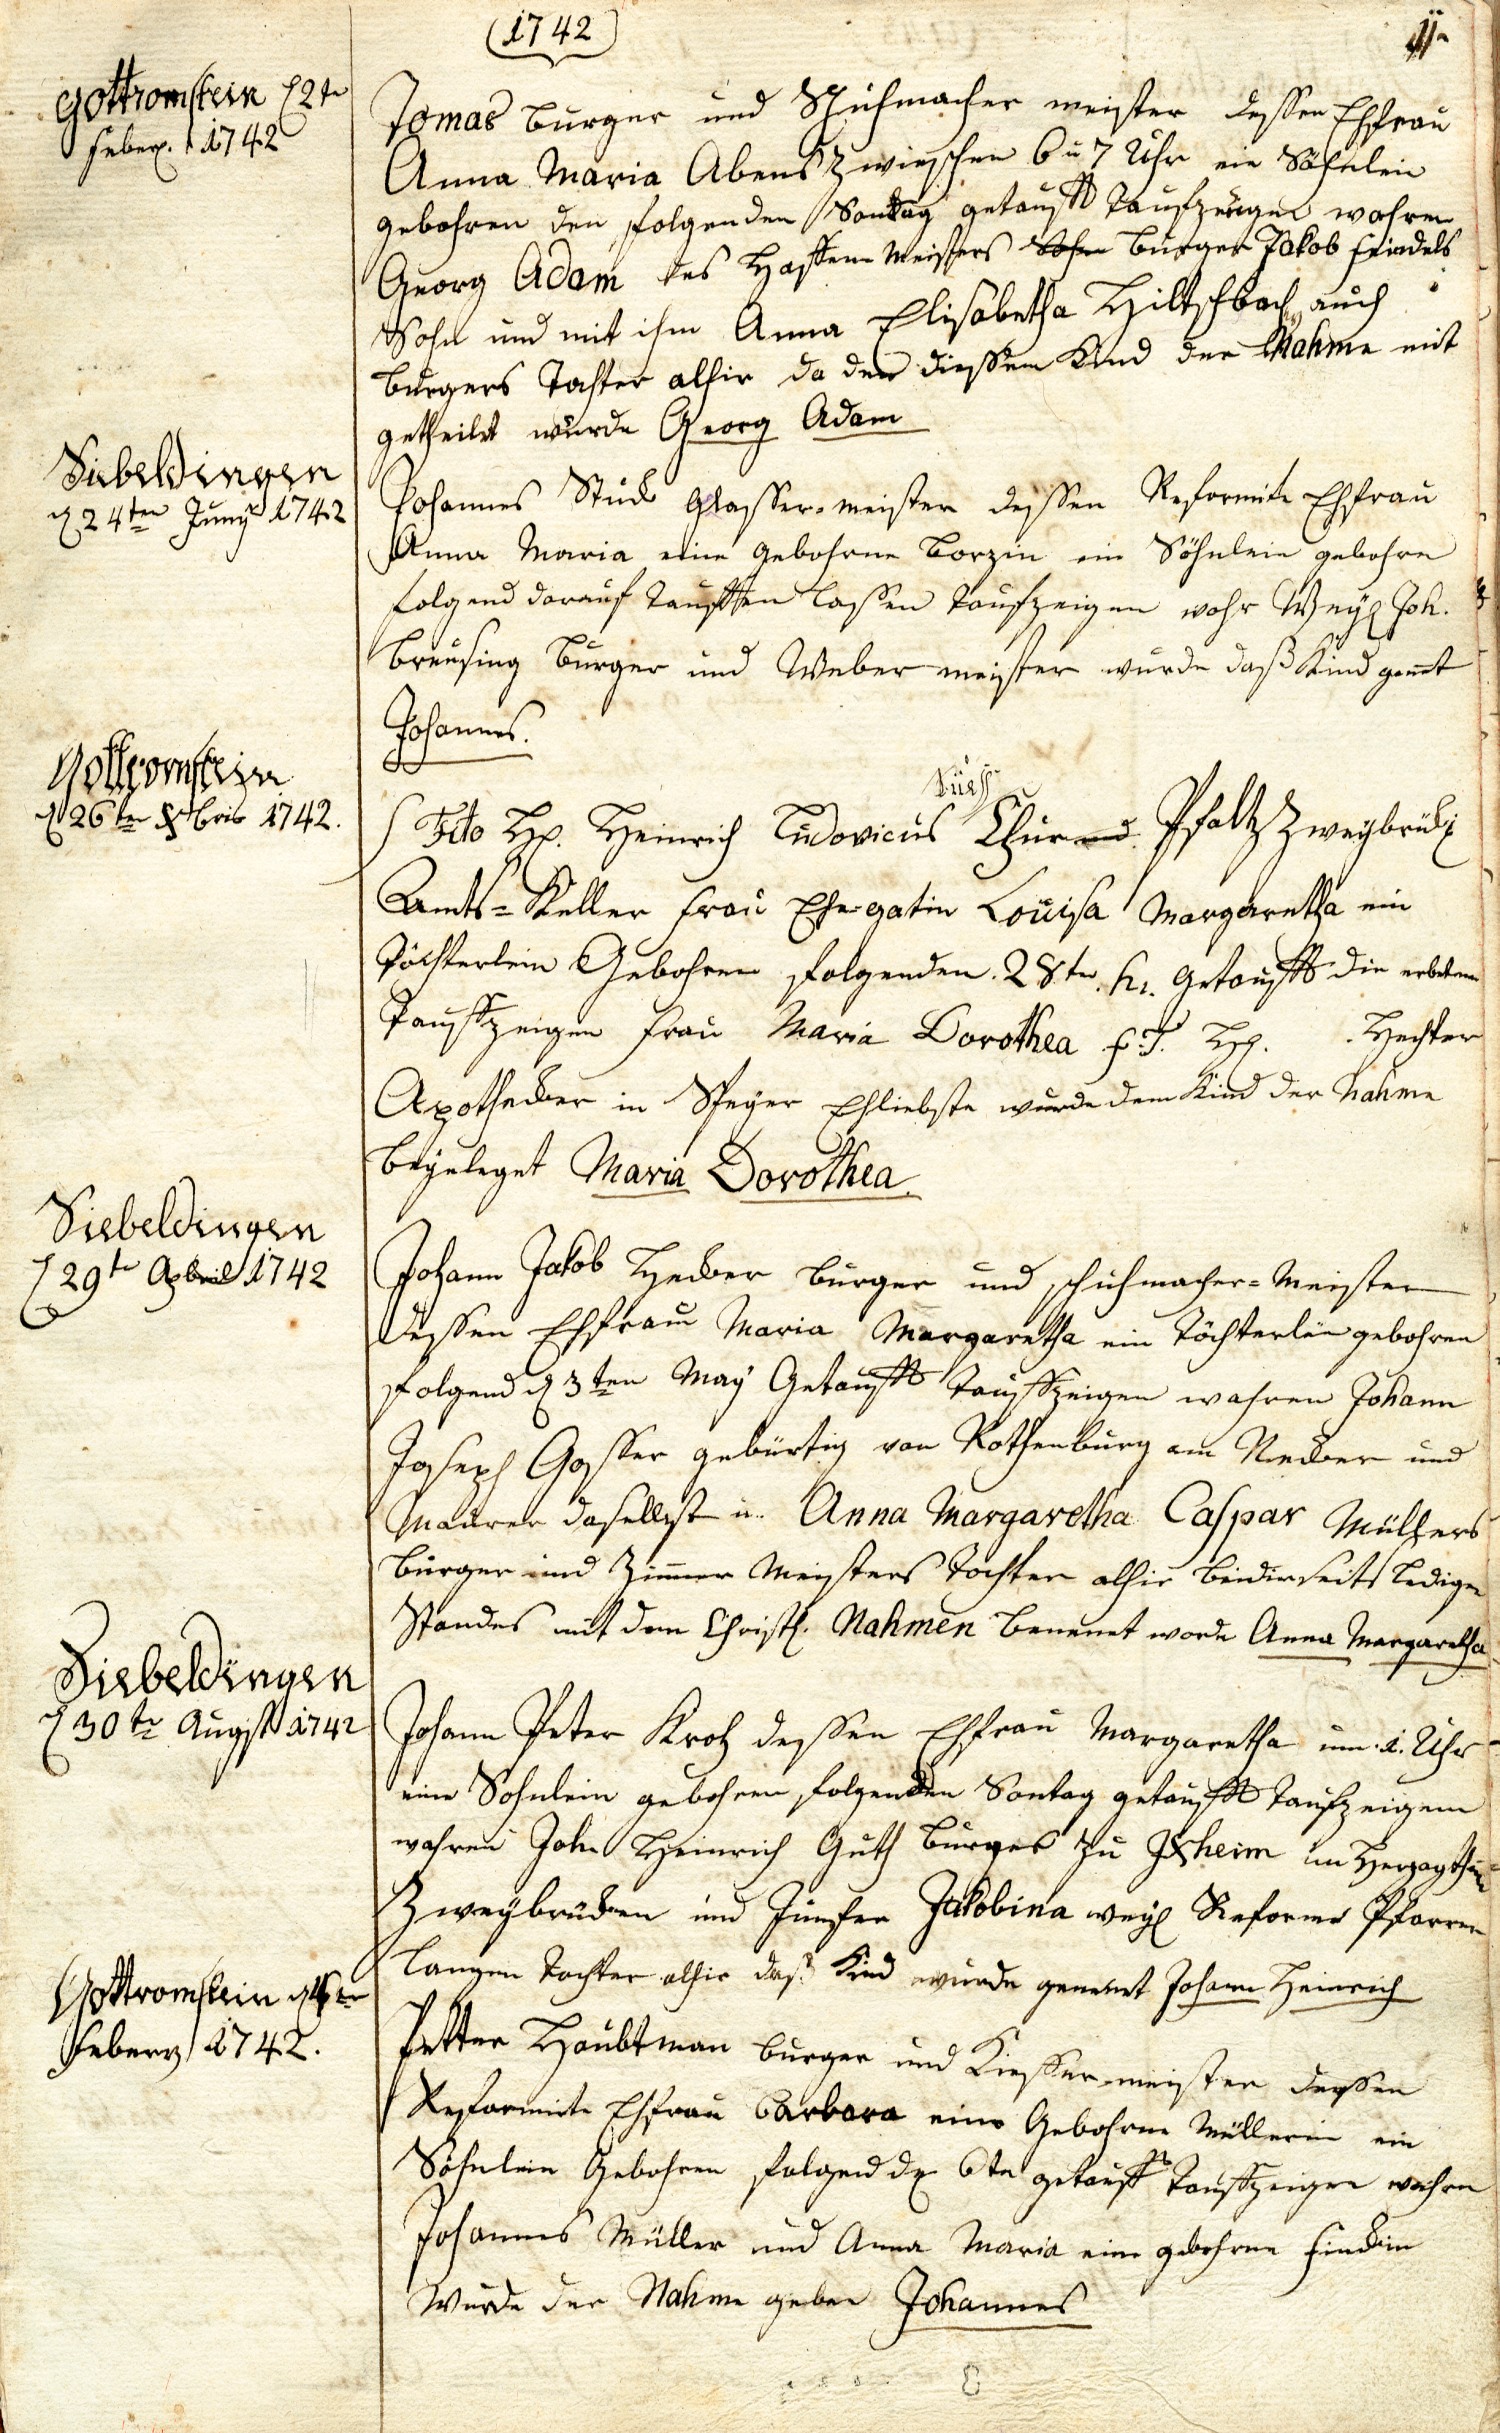 (1742)
11.
Gottromstein d 2te
Feber. 1742
Tomas Burger und Schuhmacher meister dessen Ehfrau
Anna Maria Abens zwieschen 6 u 7 Uhr ein Söhnlein
gebohren den folgenden Sontag getaufft Taufzeugen wahren
Georg Adam des Haffen Meisters Burger Jakob Feindels
Sohn und mit ihm Anna Elisabetha Hiltschbach auch
burgers Tochter alhir da den diessem Kind der Nahme mit
getheilet wurde Georg Adam
Siebeldingen
d 24ten Juny 1742
Johannes Stuck Glasser-meister dessen Reformirte Ehfrau
Anna Maria eine gebohrne Borzin ein Söhnlein gebohren
folgend darauf Tauffen lassen Taufzeigen wahr Weyl Joh.
Breusing Burger und Weber meister wurde daß Kind gennt
Johannes.
Gottromstein
d 26ten 8bris 1742.
Tito H. Heinrich Ludovicus Chur Pfaltz Zweybrük
Amts-Keller Frau Ehe-gatin Louisa Margaretha ein
Töchterlein Gebohren folgenden 28ten h. Getaufft die erbetene
Taufzeigen Frau Maria Dorothea S.T. H. Hechter
Apothecker in Speyer Ehliebste wurde dem Kind der Nahme
beygeleget Maria Dorothea.
Siebeldingen
d 29te April 1742
Johann Jakob Hecker Burger und schuhmacher-Meister
dessen Ehfrau Maria Margaretha ein Töchterlein gebohren
folgend d 3ten May Getaufft Taufzeigen wahren Johann
Joseph Gasser gebürtig von Rothenburg am Necker und
Maurer dasellbst u. Anna Margaretha Caspar Müllers
Burger und Zimmer Meisters Tochter alhir beiderseits Ledigen
Standes mit dem Christl. Nahmen benennet worde Anna Margaretha
Siebeldingen
d 30te Augst 1742
Johann Peter Krotz dessen Ehfrau Margaretha um 1. Uhr
eine Sohnlein gebohren folgenden Sontag getaufft Taufzeigen
wahren Joh. Heinrich Guth Burger zu Ixheim im Herzogthum
Zweybrücken und Junfer Jakobina weyl Reforme Pfarrer
Langen Tochter alhir daß Kind wurde genennet Johann Heinrich
Gottromstein d 4ten
Feberÿ 1742.
Petter Haubtman burger und Kieffer-meister dessen
Reformirte Ehfrau Barbara eine Gebohrne Müllerin ein
Söhnlein Gebohren folgend d 6te getauft Tauffzeigen wahren
Johannes Müller und Anna Maria eine gebohrne
Wurde der Nahme geben Johannes